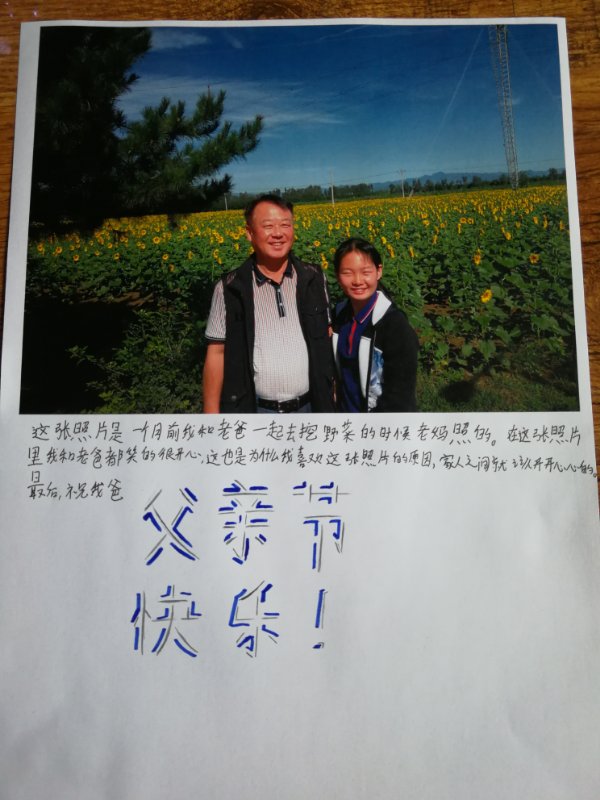 这张照片是一个月前我和老爸一起去挖野菜的时候老妈照的。在这张照片
里我和老爸都笑的很开心，这也是为什么我喜欢这张照片的原因，家人之间就该开开心心的。
最后，祝我爸
父亲节
快乐！